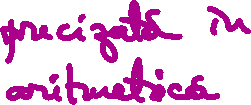 precizată în
aritmetica